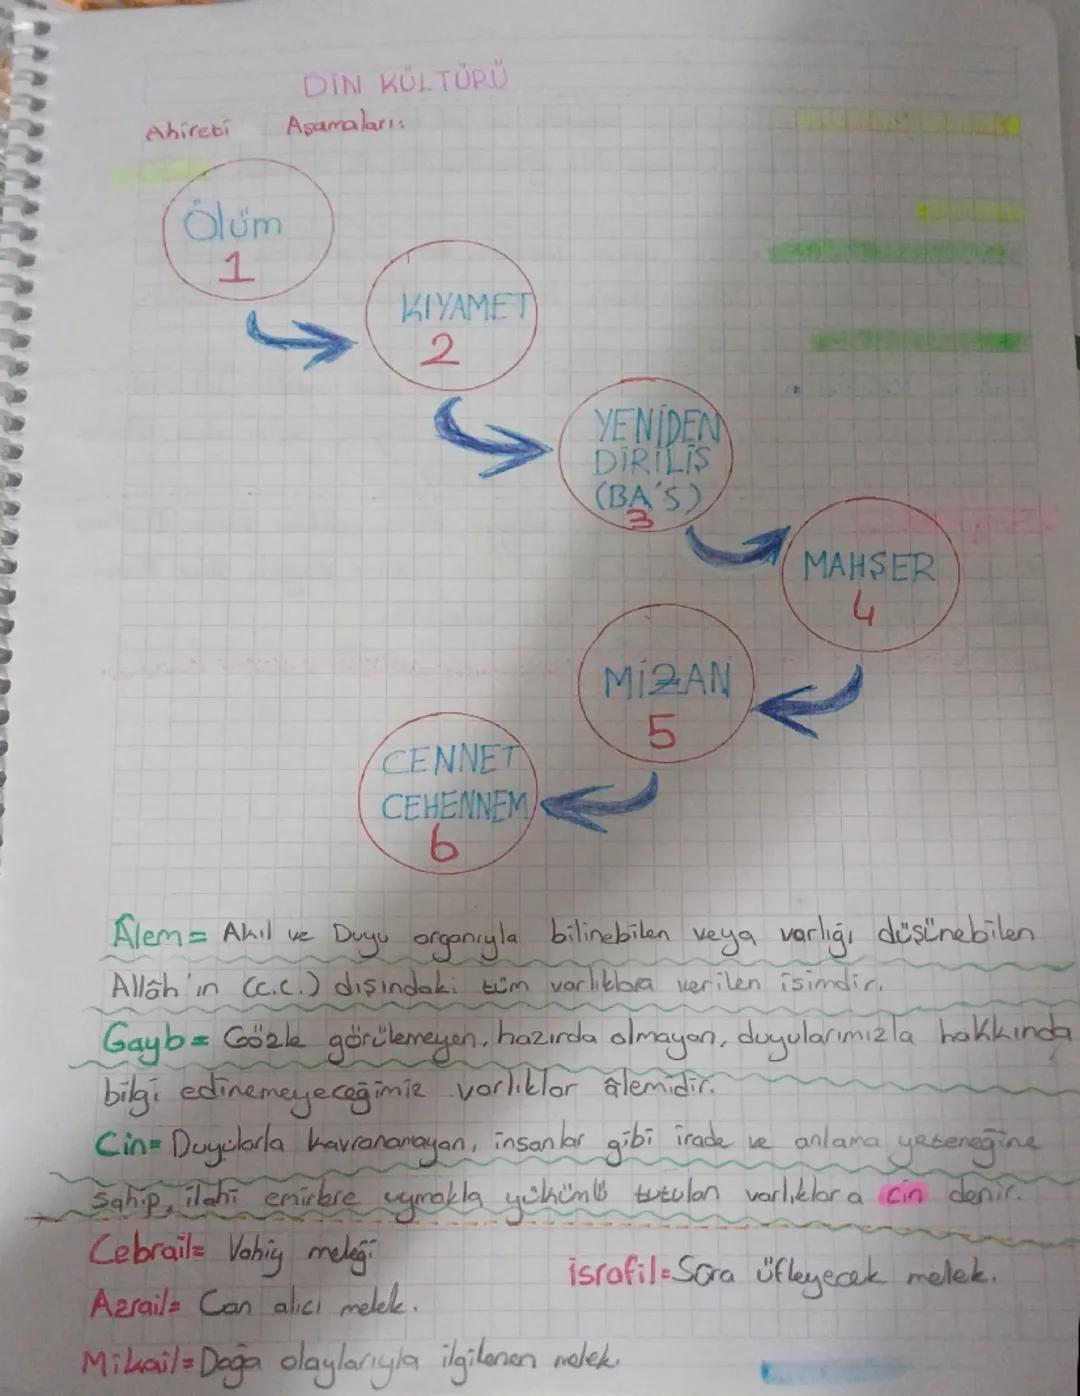 DİN KÜLTÜRÜ
Ahireti Aşamaları:
Ölüm
1
KIYAMET
2
YENİDEN
DİRİLİŞ
(BA'S)
3
MAHŞER
4
MİZAN
5
CENNET
CEHENNEM
6
Âlem= Akıl ve Duyu organıyla bilinebilen veya varlığı düşünebilen
Allâh'ın (c.c.) dışındaki tüm varlıklara verilen isimdir.
Gayb= Gözle görülemeyen, hazırda olmayan, duyularımızla hakkında
bilgi edinemeyeceğimiz varlıklar âlemidir.
Cin= Duyularla kavranamayan, insanlar gibi irade ve anlama yeteneğine
sahip, ilahi emirlere uymakla yükümlü tutulan varlıklara cin denir.
Cebrail= Vahiy meleği
İsrafil= Sora üfleyecek melek.
Azrail= Can alıcı melek.
Mikail= Doğa olaylarıyla ilgilenen melek.